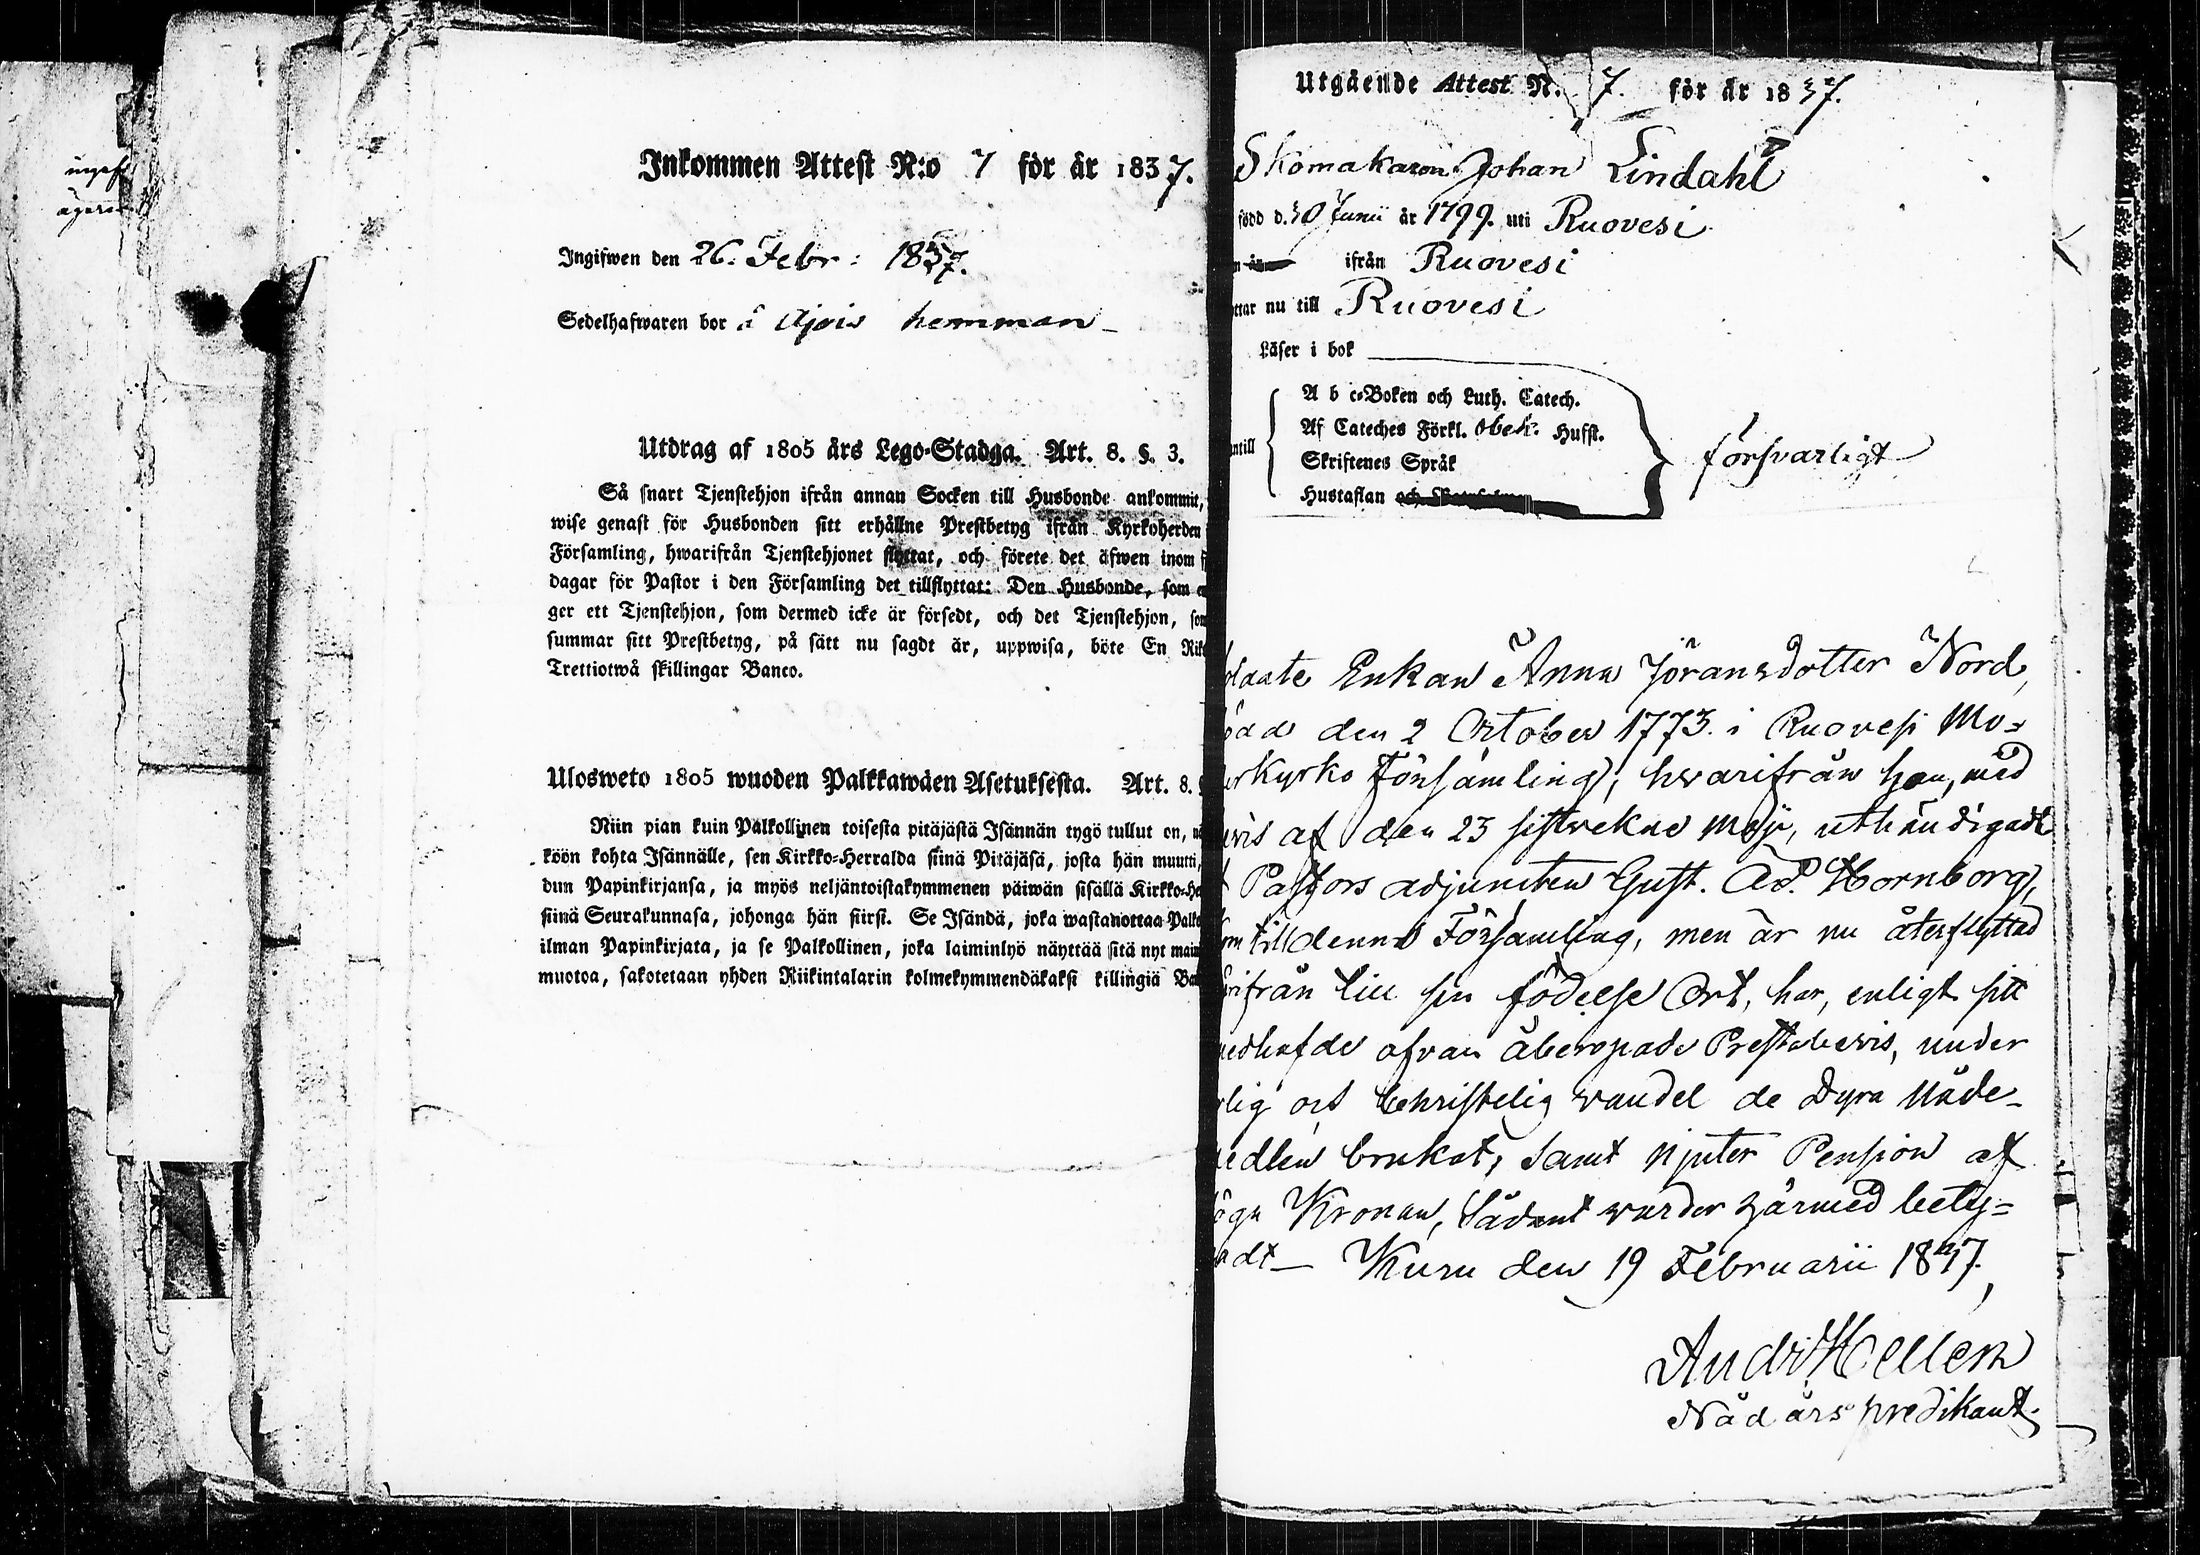 Inkommen Attest N:o 7 för år 1837.
Ingifwen den 26. Febr: 1837.
Sedelhafwaren bor å Ajois hemman
Utdrag af 1805 års Lego-Stadga. Art. 8. §. 3.
Så snart Tjenstehjon ifrån annan Socken till Husbonde ankommit,
wise genast för Husbonden sitt erhållne Prestbetyg ifrån Kyrkoherden
Församling, hwarifrån Tjenstehjonet flyttat, och förete det äfwen inom
dagar för Pastor i den Församling det tillflyttat: Den Husbonde, som
ger ett Tjenstehjon, som dermed icke är försedt, och det Tjenstehjon,
summar sitt Prestbetyg, på sätt nu sagdt är, uppwisa, böte En
Trettiotwå skillingar Banco.
Ulosweto 1805 wuoden Palkkawäen Asetuksesta. Art. 8.
Niin pian kuin Palkollinen toisesta pitäjästä Isännän tygö tullut on,
köön kohta Isännälle, sen Kirkko-Herralda siinä Pitäjäsä, josta hän muutti,
dun Papinkirjansa, ja myös neljäntoistakymmenen päiwän sisällä Kirkko-
siinä Seurakunnasa, johonga hän siirsi. Se Isändä, joka wastanottaa
ilman Papinkirjata, ja se Palkollinen, joka laiminlyö näyttää sitä nyt
muotoa, sakotetaan yhden Riikintalarin kolmekymmendäkaksi killingiä
Utgående Attest N. 7. för år 1837.
Skomakaren Johan Lindahl
född d. 30 Junii år 1799. uti Ruovesi
ifrån Ruovesi
ttar nu till Ruovesi
Läser i bok
A b c-Boken och Luth. Catech.
Af Cateches Förkl. obek. Hufst.
Skriftenes Språk
Hustaflan
ntill
försvarligt
Enkan Anna Jöransdotter Nord,
den 2 October 1773. i Ruovesi Mo=
erkyrko Församling, hvarifrån hon, med
vis af den 23 sistvekne Maji, uthändigadt
Pastors adjuncten Gust. Ad. Hornborg,
till denna Församling, men är nu återflyttad
rifrån till sin födelse Ort, har, enligt sitt
medhafde ofvan åberopade Prestebevis, under
rlig och Christelig vandel de Dyra Nåde-
edlen brukat, samt njuter Pension af
öga Kronan, Sådant varder härmed bety=
adt Kuru den 19 Februarii 1837.
And: Hellen
Nådårspredikant.